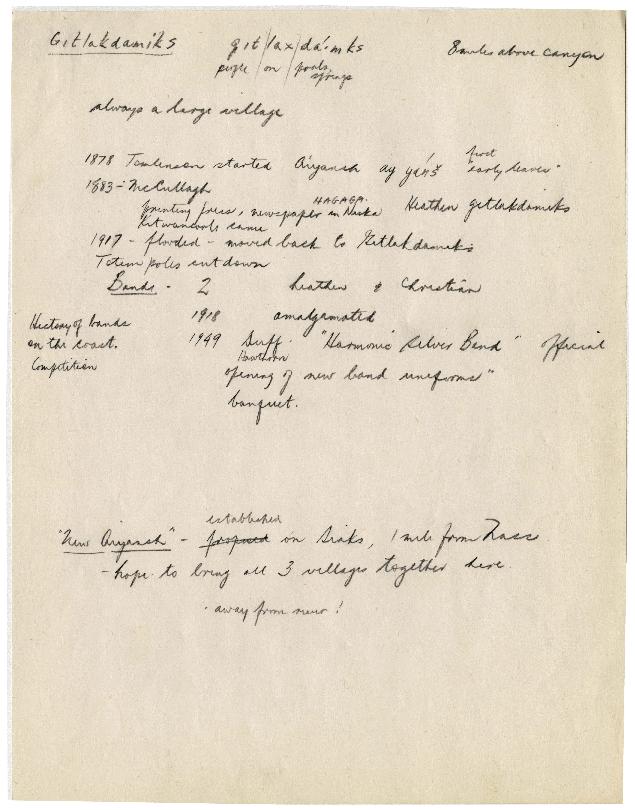 Gitlakdamiks   git/lax/dá·mks   8 miles above canyon
people / on / pools
springs
always a large village
first
1878 Tomlinson started Aiyansh ay yáns "early leaves"
1883 - McCullagh
HAGAGA.
printing press, newspaper in Niska   Heathen gitlakdamiks
Kitwancools came
1917 - flooded - moved back to Gitlakdamiks
Totem poles cut down
Bands - 2   heathen & Christian
1918   amalgamated
History of bands
on the coast.
Competition
1949 Duff. "Harmonic Silver Band" official
Hawthorn
opening of new band uniforms"
banquet.
established
"New Aiyansh" - proposed on Sinks, 1 mile from Nass
- hope to bring all 3 villages together here.
. away from river!